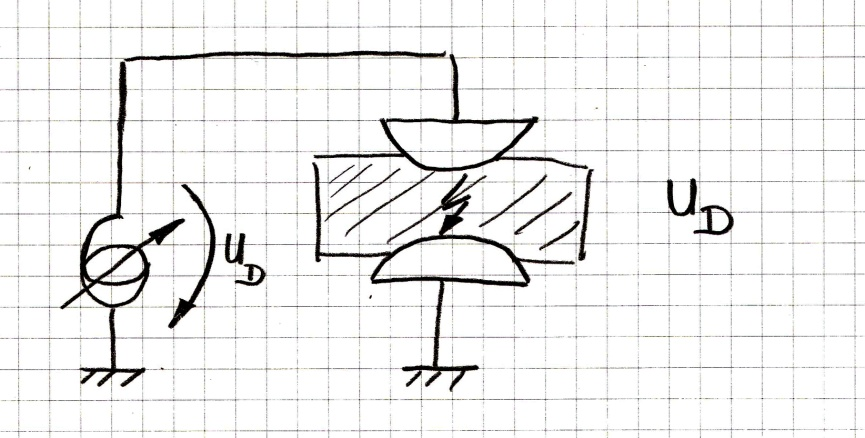 U_D
U_D